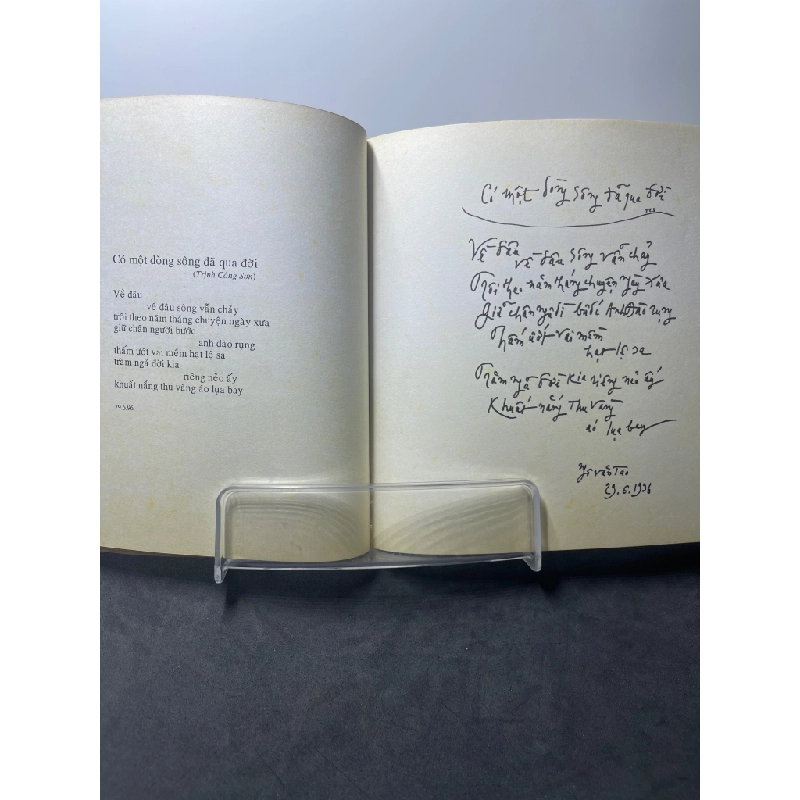 Có một dòng sông đã qua đời
(Trịnh Công Sơn)
Về đâu
về đâu sông vẫn chảy
trôi theo năm tháng chuyện ngày xưa
giữ chân người bước
anh đào rụng
thấm ướt vai mềm hạt lệ sa
trăm ngả đời kia
riêng nẻo ấy
khuất nắng thu vàng áo lụa bay
Có một dòng sông đã qua đời
Về đâu
về đâu sông vẫn chảy
Trôi theo năm tháng chuyện ngày xưa
Giữ chân người bước Anh Đào rụng
Thấm ướt vai mềm
hạt lệ sa
Trăm ngả đời kia riêng nẻo ấy
Khuất nắng Thu Vàng
áo lụa bay
29.6.1996